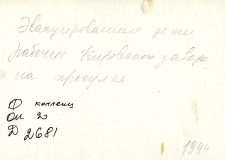 Эвакуированные дети
рабочих Кировского завода
на прогулке
Ф коллекц
Оп 20
Д 2681
1944